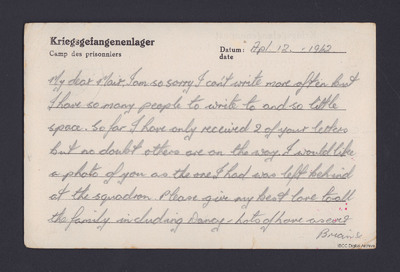 Kriegsgefangenenlager
Camp des prisonniers
Datum: Apl. 12. - 1942
date
My dear Mair, I am so sorry I can't write more often but
I have so many people to write to and so little
space. So far I have only received 2 of your letters
but no doubt others are on the way. I would like
a photo of you as the one I had was left behind
at the squadron. Please give my best love to all
the family including - Lots of love as ever
Brian
IBCC Digital Archive